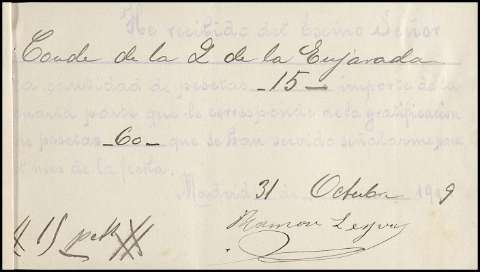 He recibido del Excmo Señor
Conde de la Q de la Enjarada
la cantidad de pesetas - 15 - importe de la
cuarta parte que le corresponde en la gratificación
de pesetas - 60 - que se han servido señalarme por
el mes de la fecha.
Madrid 31 de Octubre 19 9
Ramon Leyva
# 15 pets #